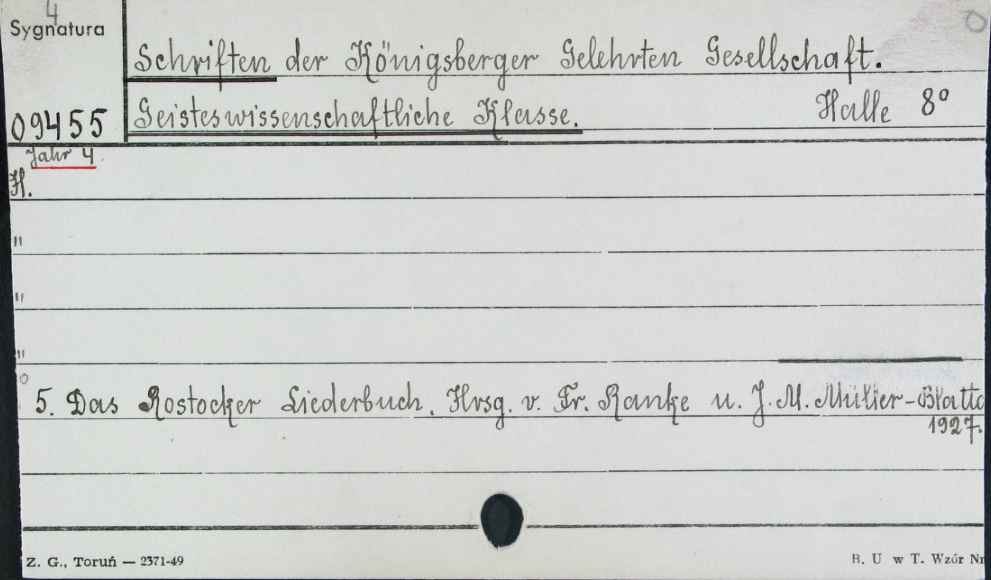 4
Sygnatura
Schriften der Königsberger Gelehrten Gesellschaft.
09455
Geisteswissenschaftliche Klasse. Halle 8°
Jahr 4.
H.
"
"
"
5. Das Rostocker Liederbuch. Hrsg. v. Fr. Ranke u. J. M. Müller-Blatta
1927.
Z. G., Toruń — 2371-49
B. U w T. Wzór Nr